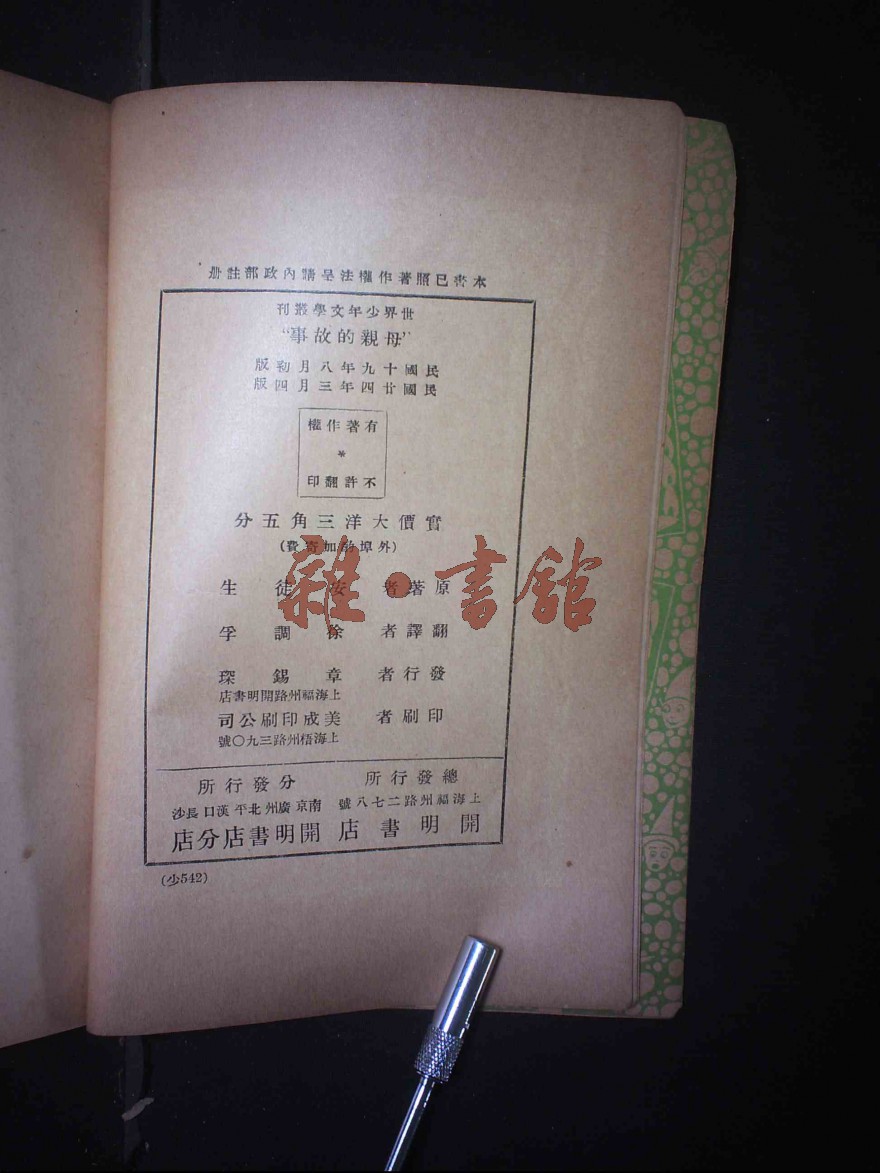 本書已照著作權法呈請內政部註册
世界少年文學叢刊
“母親的故事”
民國十九年八月初版
民國廿四年三月四版
有著作權
*
不許翻印
實價大洋三角五分
(外埠酌加寄費)
原著者 安徒生
翻譯者 徐調孚
發行者 章錫琛
上海福州路開明書店
印刷者 美成印刷公司
上海梧州路三九〇號
總發行所
上海福州路二七八號
開明書店
分發行所
南京 廣州 北平 漢口 長沙
開明書店分店
(少542)
雜·書館